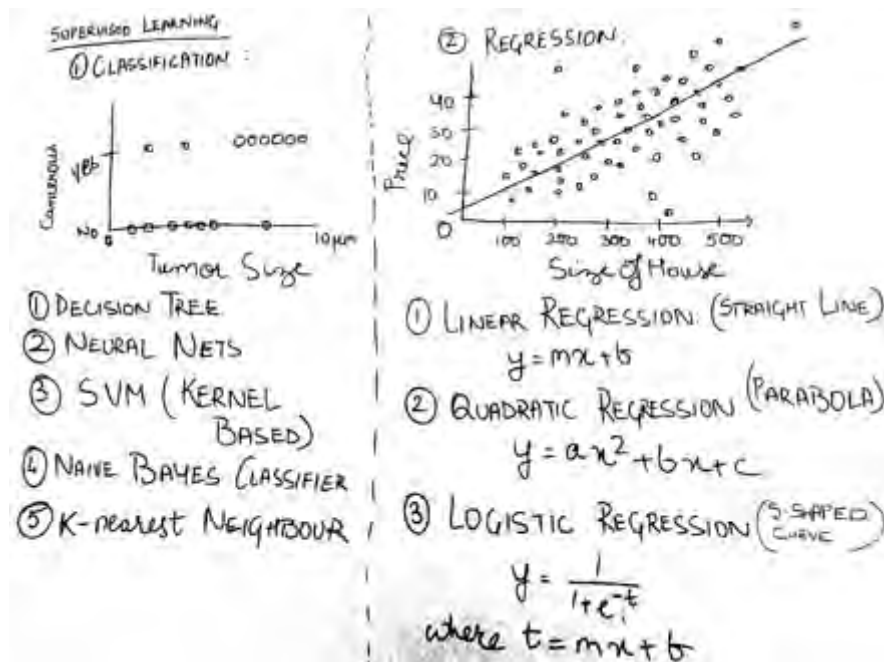 SUPERVISED LEARNING
① CLASSIFICATION :
Cancerous
yes
No
10 μm
Tumor Size
① DECISION TREE
② NEURAL NETS
③ SVM (KERNEL
BASED)
④ NAIVE BAYES CLASSIFIER
⑤ K-nearest NEIGHBOUR
② REGRESSION
Price
40
30
20
10
0
100 200 300 400 500
Size of House
① LINEAR REGRESSION (STRAIGHT LINE)
y = mx + b
② QUADRATIC REGRESSION (PARABOLA)
y = ax² + bx + c
③ LOGISTIC REGRESSION (S-SHAPED
CURVE)
y = 1
1+e⁻ᵗ
where t = mx + b